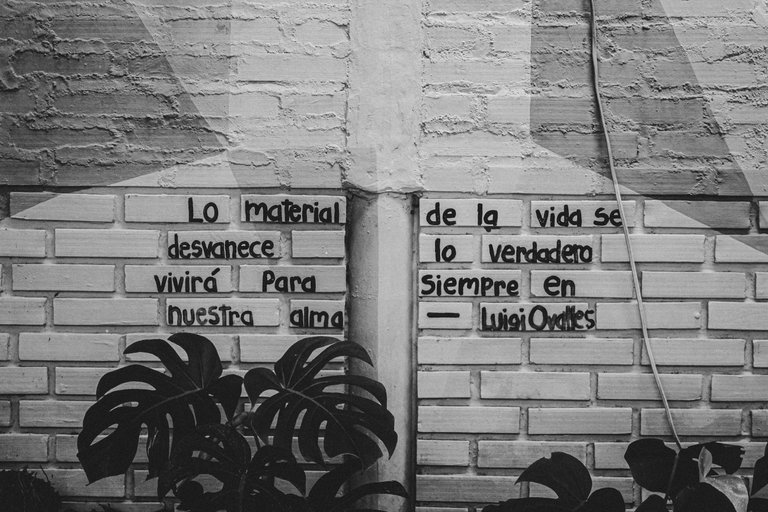 Lo material de la vida se
desvanece lo verdadero
vivirá Para siempre en
nuestra alma — Luigi Ovalles